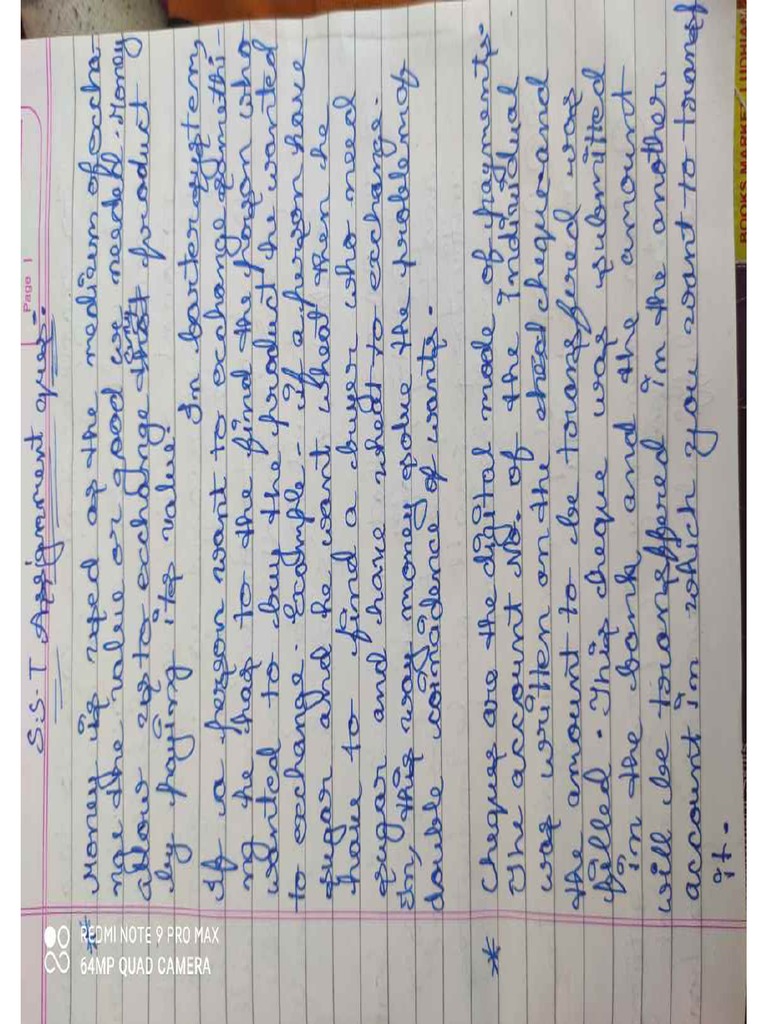 Page 1
S.S.T Assignment ques:
* Money is used as the medium of excha-
nge the value or good we needed. Money
allow us to exchange any that product
by paying its value.
In barter system,
If a person want to exchange somethi-
ng he has to the find the person who
wanted to buy the product he wanted
to exchange. Example - if a person have
sugar and he want wheat then he
have to find a buyer who need
sugar and have wheat to exchange.
In, this way money solve the problem of
double coincidence of wants.
* Cheques are the digital mode of payments.
The account No. of the individual
was written on the cheque and
the amount to be transfered was
filled. This cheque was submitted
in the bank and the amount
will be transffered in the another
account in which you want to transf
it.
REDMI NOTE 9 PRO MAX
64MP QUAD CAMERA
BOOKS MARKET LUDHIAN